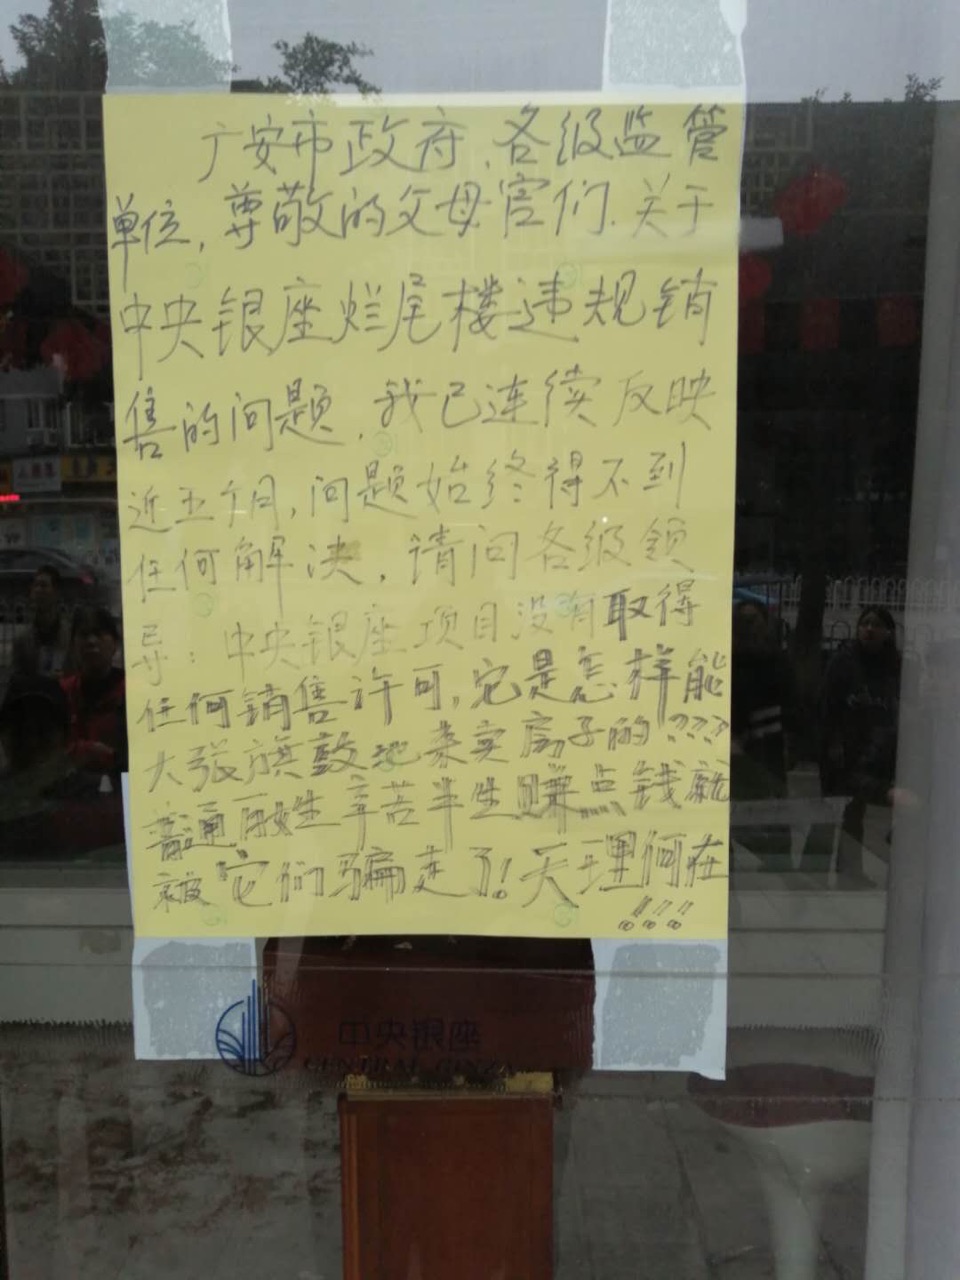 广安市政府、各级监管
单位，尊敬的父母官们、关于
中央银座烂尾楼违规销
售的问题，我已连续反映
近五个月，问题始终得不到
任何解决，请问各级领
导：中央银座项目没有取得
任何销售许可，它是怎样能
大张旗鼓地来卖房子的???
普通百姓辛苦半生赚点钱就
被它们骗走了！天理何在
!!!
中央银座
CENTRAL GINZA